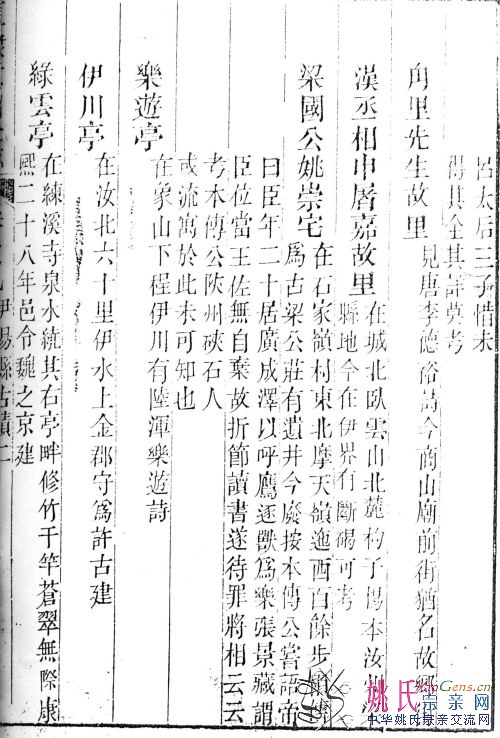 呂太后三子惜未
得其全其詳莫考
角里先生故里
見唐李德裕詩今商山廟前街猶名故鄉
漢丞相申屠嘉故里
在城北臥雲山北麓杓子
縣地今在伊界有斷碣可考
梁國公姚崇宅
在石家嶺村東北摩天嶺迤西百餘步
為古梁公莊有遺井今廢按本傳公嘗語帝
曰臣年二十居廣成澤以呼鷹逐獸為樂張景藏謂
臣位當王佐無自棄故折節讀書遂待罪將相云云
考本傳公陝州硤石人
或流寓於此未可知也
樂遊亭
在象山下程伊川有陸渾樂遊詩
伊川亭
在汝北六十里伊水上金郡守為許古建
綠雲亭
在練溪寺泉水繞其右亭畔修竹千竿蒼翠無際康
熙二十八年邑令魏之京建
伊陽縣古蹟二
姚氏宗亲网
Gens.cn
中华姚氏宗亲交流网